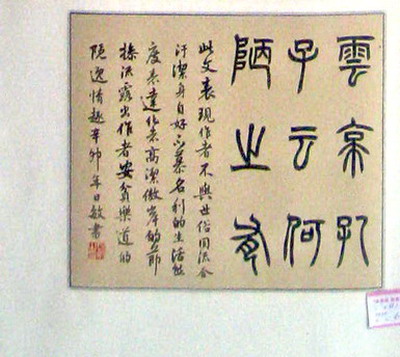 雲亭孔
子云何
陋之有
此文表現作者不與世俗同流合
汙潔身自好不慕名利的生活態
度表達作者高潔傲岸的節
操流露出作者安貧樂道的
隱逸情趣辛卯年日敏書